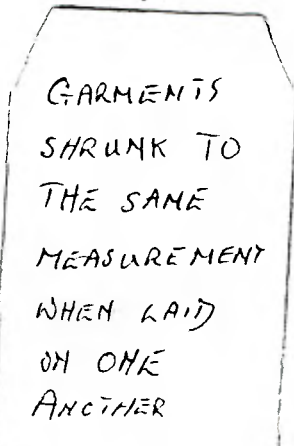 GARMENTS
SHRUNK TO
THE SAME
MEASUREMENT
WHEN LAID
ON ONE
ANOTHER